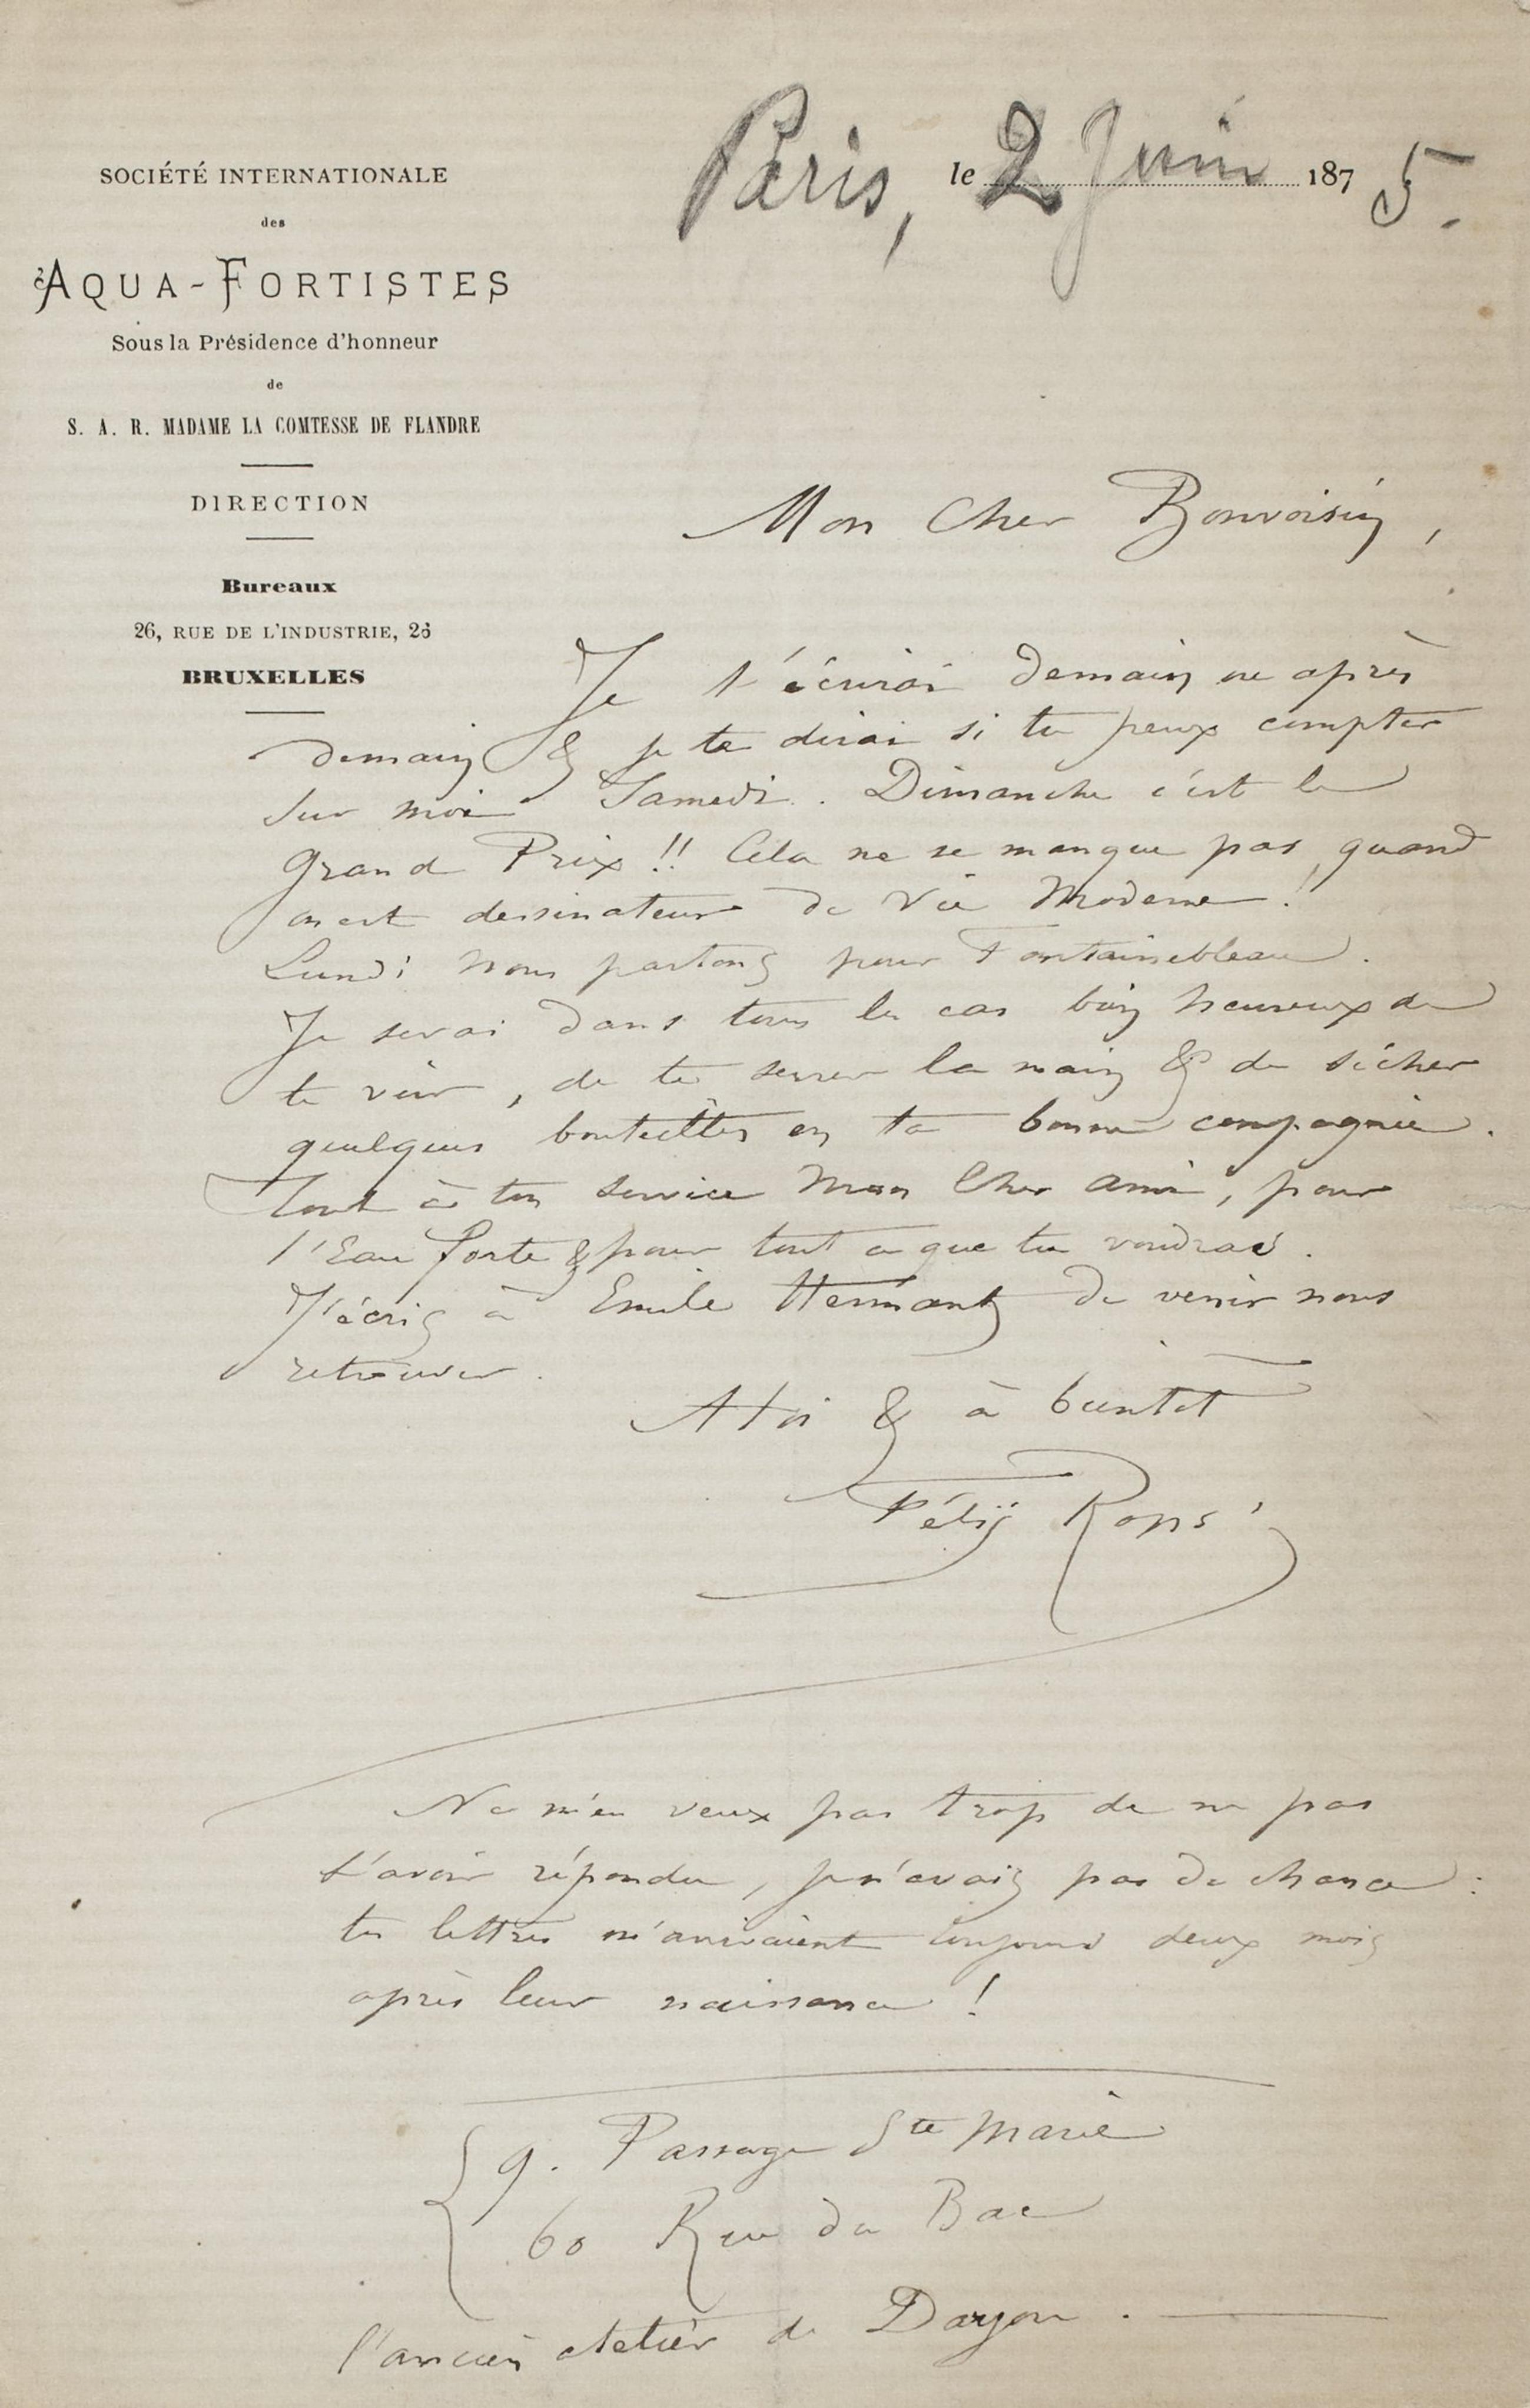 SOCIÉTÉ INTERNATIONALE
des
AQUA-FORTISTES
Sous la Présidence d'honneur
de
S. A. R. MADAME LA COMTESSE DE FLANDRE
DIRECTION
Bureaux
26, RUE DE L'INDUSTRIE, 26
BRUXELLES
Paris, le 2 Juin 1875.
Mon Cher Bonvoisin,
Je t'écrirai demain ou après
demain & je te dirai si tu peux compter
sur moi Samedi. Dimanche c'est le
Grand Prix !! Cela ne se manque pas, quand
on est dessinateur de Vie Moderne !
Lundi nous partons pour Fontainebleau.
Je serai dans tous les cas bien heureux de
te voir, de te serrer la main & de sécher
quelques bouteilles en ta bonne compagnie.
Tout à ton service Mon Cher Ami, pour
l'Eau forte & pour tout ce que tu voudras.
J'écris à Emile Hermant de venir nous
retrouver.
A toi & à bientot
Félix Rops
Ne m'en veux pas trop de ne pas
t'avoir répondu, je n'avais pas de chance :
tes lettres m'arrivaient toujours deux mois
après leur naissance !
9. Passage Ste Marie
60 Rue du Bac
l'ancien atelier de